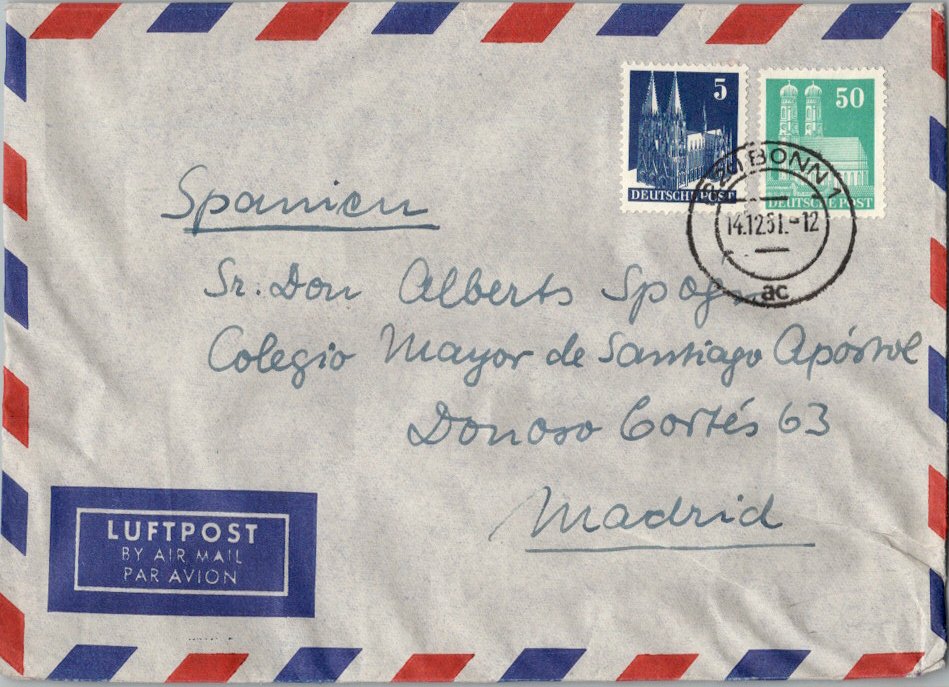 5
DEUTSCHE POST
50
DEUTSCHE POST
BONN 1
14.12.51.-12
ac
Spanien
Sr. Don Alberts
Colegio Mayor de Santiago Apóstol
Donoso Cortés 63
Madrid
LUFTPOST
BY AIR MAIL
PAR AVION